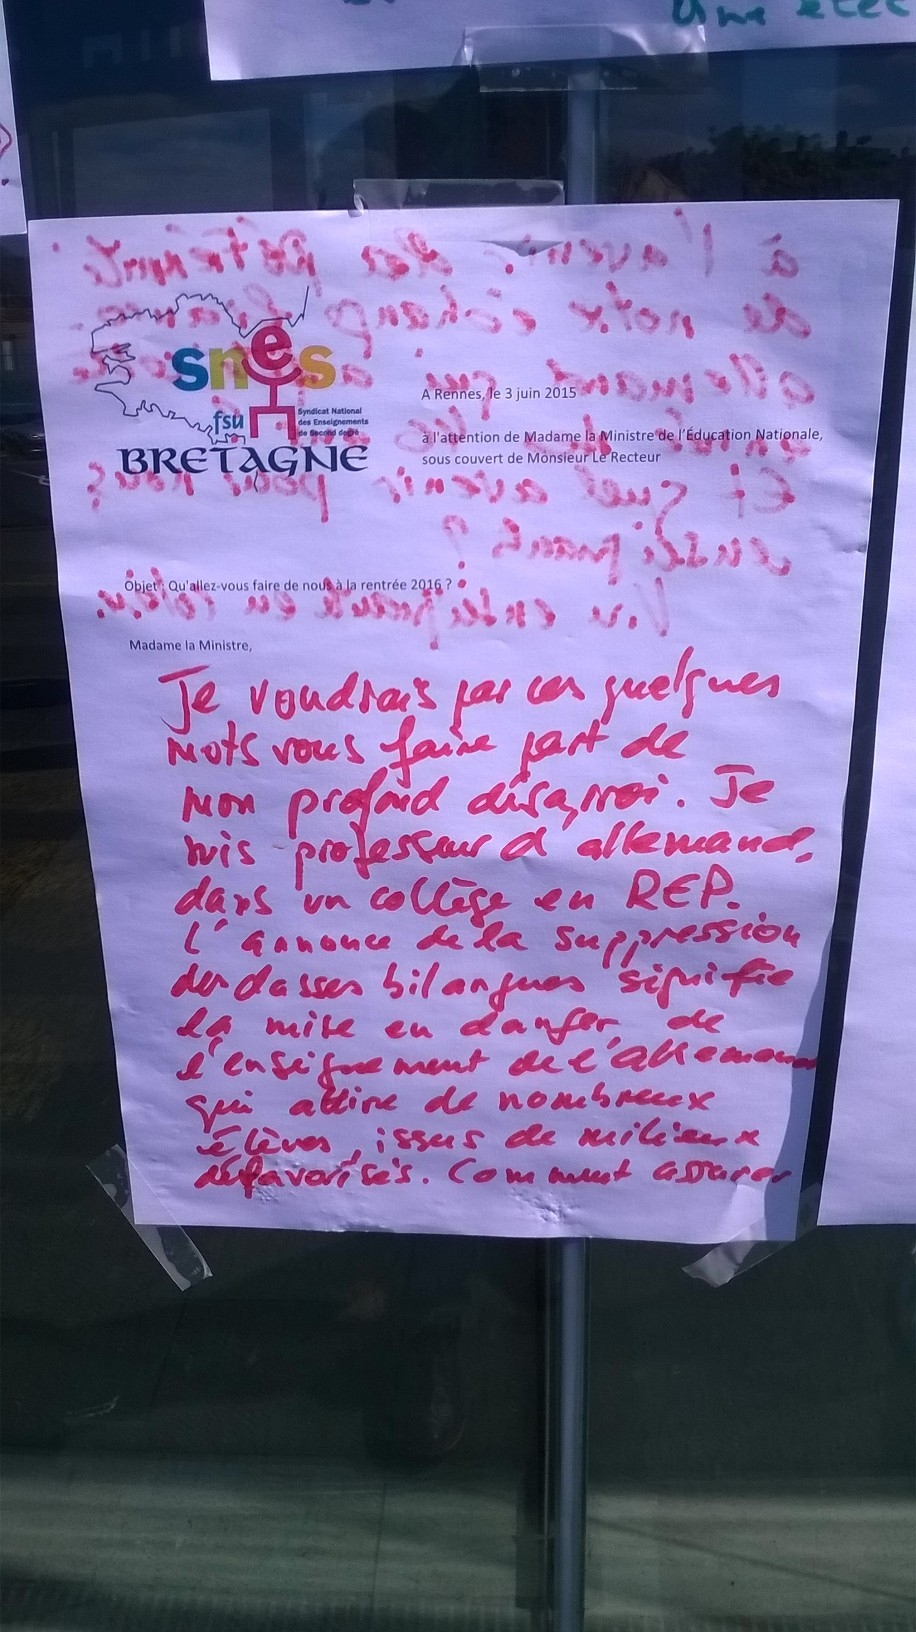 une
snes
fsu
Syndicat National
des Enseignements
de Second degré
BRETAGNE
A Rennes, le 3 juin 2015
à l'attention de Madame la Ministre de l'Éducation Nationale,
sous couvert de Monsieur Le Recteur
Objet : Qu'allez-vous faire de nous à la rentrée 2016 ?
Madame la Ministre,
Je voudrais par ces quelques
mots vous faire part de
mon profond désarroi. Je
suis professeur d'allemand
dans un collège en REP.
L'annonce de la suppression
des classes bilangues signifie
la mise en danger de
l'enseignement de l'allemand
qui attire de nombreux
élèves issus de milieux
défavorisés. Comment assurer
à l'avenir
de notre
allemand
Et quel avenir pour nous
enseignants ?